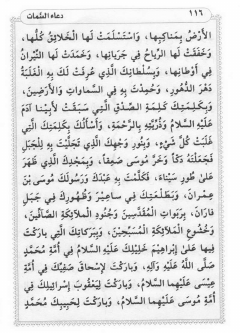 ١١٦ دعاء السمات
الأَرْضُ بِمَناكِبِها، وَاسْتَسْلَمَتْ لَها الْخَلائِقُ كُلُّها،
وَخَفَقَتْ لَها الرِّياحُ فِي جَرَيانِها، وَخَمَدَتْ لَها النِّيرانُ
فِي أَوْطانِها، وَبِسُلْطانِكَ الَّذِي عُرِفَتْ لَكَ بِهِ الْغَلَبَةُ
دَهْرَ الدُّهُورِ، وَحُمِدْتَ بِهِ فِي السَّماواتِ وَالأَرَضِينَ،
وَبِكَلِمَتِكَ كَلِمَةِ الصِّدْقِ الَّتِي سَبَقَتْ لأَبِينا آدَمَ
عَلَيْهِ السَّلامُ وَذُرِّيَّتِهِ بِالرَّحْمَةِ، وَأَسْأَلُكَ بِكَلِمَتِكَ الَّتِي
غَلَبَتْ كُلَّ شَيْءٍ، وَبِنُورِ وَجْهِكَ الَّذِي تَجَلَّيْتَ بِهِ لِلْجَبَلِ
فَجَعَلْتَهُ دَكّاً وَخَرَّ مُوسَى صَعِقاً، وَبِمَجْدِكَ الَّذِي ظَهَرَ
عَلَى طُورِ سَيْناءَ، فَكَلَّمْتَ بِهِ عَبْدَكَ وَرَسُولَكَ مُوسَى بْنَ
عِمْرانَ، وَبِطَلْعَتِكَ فِي ساعِيرَ وَظُهُورِكَ فِي جَبَلِ
فارانَ، بِرَبَواتِ الْمُقَدَّسِينَ وَجُنُودِ الْمَلائِكَةِ الصَّافِّينَ،
وَخُشُوعِ الْمَلائِكَةِ الْمُسَبِّحِينَ، وَبِبَرَكاتِكَ الَّتِي بارَكْتَ
فِيها عَلَى إِبْراهِيمَ خَلِيلِكَ عَلَيْهِ السَّلامُ فِي أُمَّةِ مُحَمَّدٍ
صَلَّى اللهُ عَلَيْهِ وَآلِهِ، وَبارَكْتَ لإِسْحاقَ صَفِيِّكَ فِي أُمَّةِ
عِيسَى عَلَيْهِما السَّلامُ، وَبارَكْتَ لِيَعْقُوبَ إِسْرائِيلِكَ فِي
أُمَّةِ مُوسَى عَلَيْهِما السَّلامُ، وَبارَكْتَ لِحَبِيبِكَ مُحَمَّدٍ